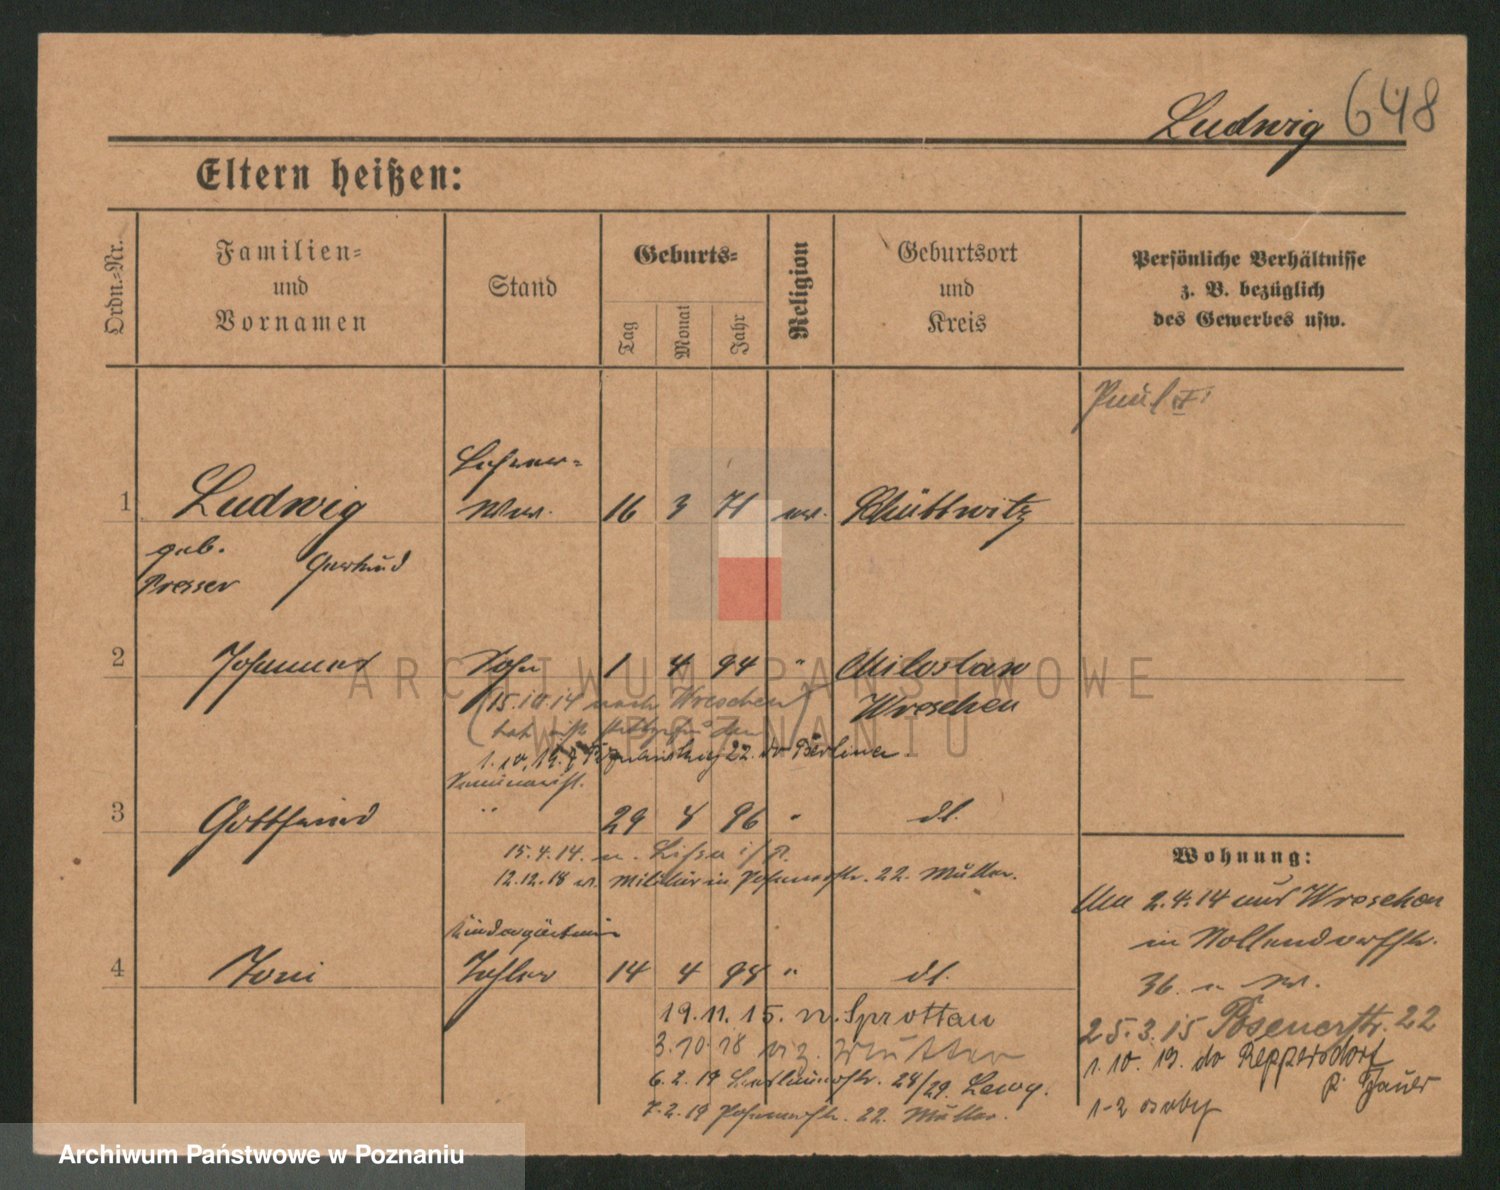 Ludwig 648
Eltern heißen:
Ordn.-Nr.
Familien-
und
Vornamen
Stand
Geburts-
Tag
Monat
Jahr
Religion
Geburtsort
und
Kreis
Persönliche Verhältnisse
z. B. bezüglich
des Gewerbes usw.
Lehrer-
1 Ludwig Ww. 16 3 71 ev. Schüttwitz
geb. Gertrud
Presser
2 Johannes Sohn 1 4 94 " Miloslaw
(15.10.14 nach Wreschen) Wreschen
22. do Berliner.
Seminarist.
3 Gottfried " 29 4 96 " do.
15.4.14. n. Lissa i/P.
12.12.18 v. Militär in Posenerstr. 22. Mutter.
Kindergärtnerin
4 Toni Tochter 14 4 98 " do.
19.11.15. n. Sprottau
3.10.18 Mutter
6.2.19 28/29.
7.2.19 Posenerstr. 22. Mutter.
Wohnung:
Am 2.4.14 aus Wreschen
in Nollendorfstr.
36.
25.3.15 Posenerstr. 22
1.10.19. do Reppersdorf
p. Jauer
1-2 osoby
ARCHIWUM PAŃSTWOWE
W POZNANIU
Archiwum Państwowe w Poznaniu